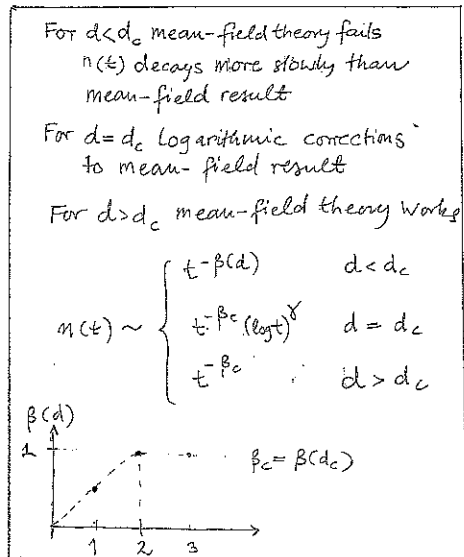 For d<d_c mean-field theory fails
n(t) decays more slowly than
mean-field result
For d=d_c logarithmic corrections
to mean-field result
For d>d_c mean-field theory works
n(t) ~ { t^-β(d) d<d_c
t^-β_c (log t)^γ d = d_c
t^-β_c d>d_c
β(d)
1
β_c = β(d_c)
1 2 3